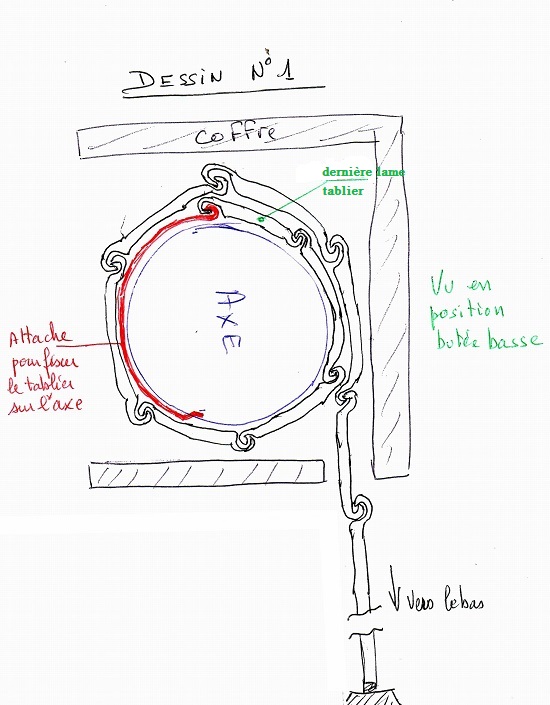 DESSIN N°1
coffre
dernière lame
tablier
AXE
Vu en
position
butée basse
Attache
pour fixer
le tablier
sur l'axe
vers le bas